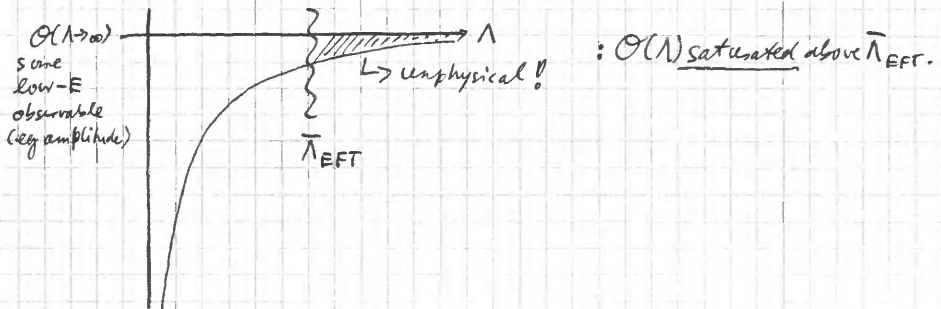 O(Λ→∞)
some
low-E
observable
(eg amplitude)
Λ
↳ unphysical!
Λ̄_EFT
: O(Λ) saturated above Λ̄_EFT.